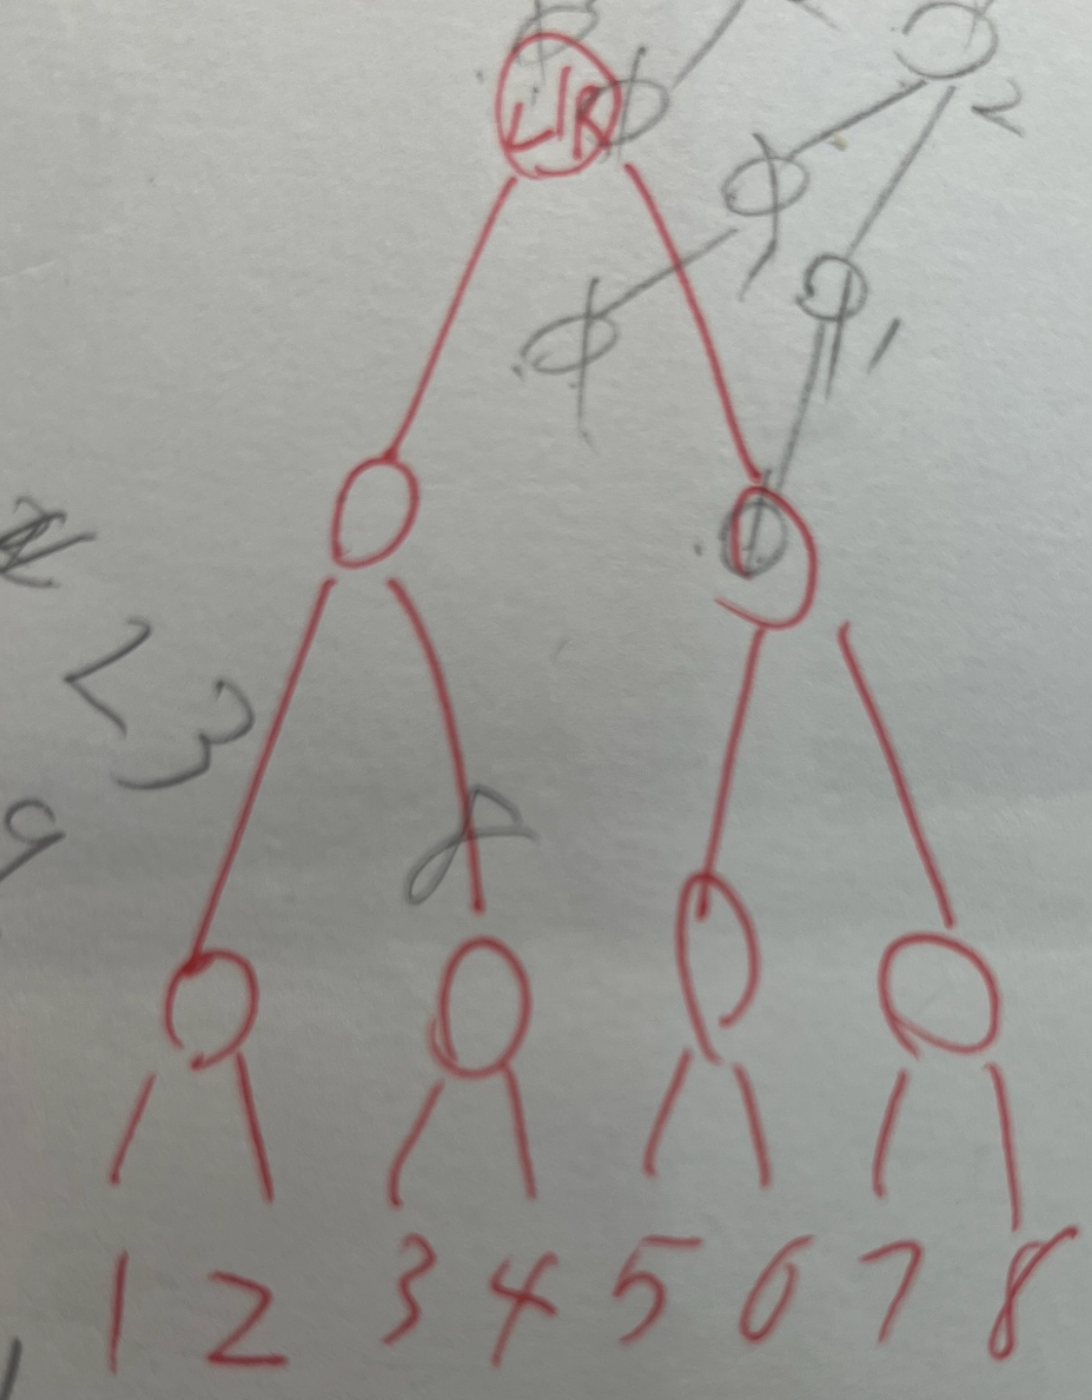 L|R
2
1
<3
8
1 2 3 4 5 6 7 8